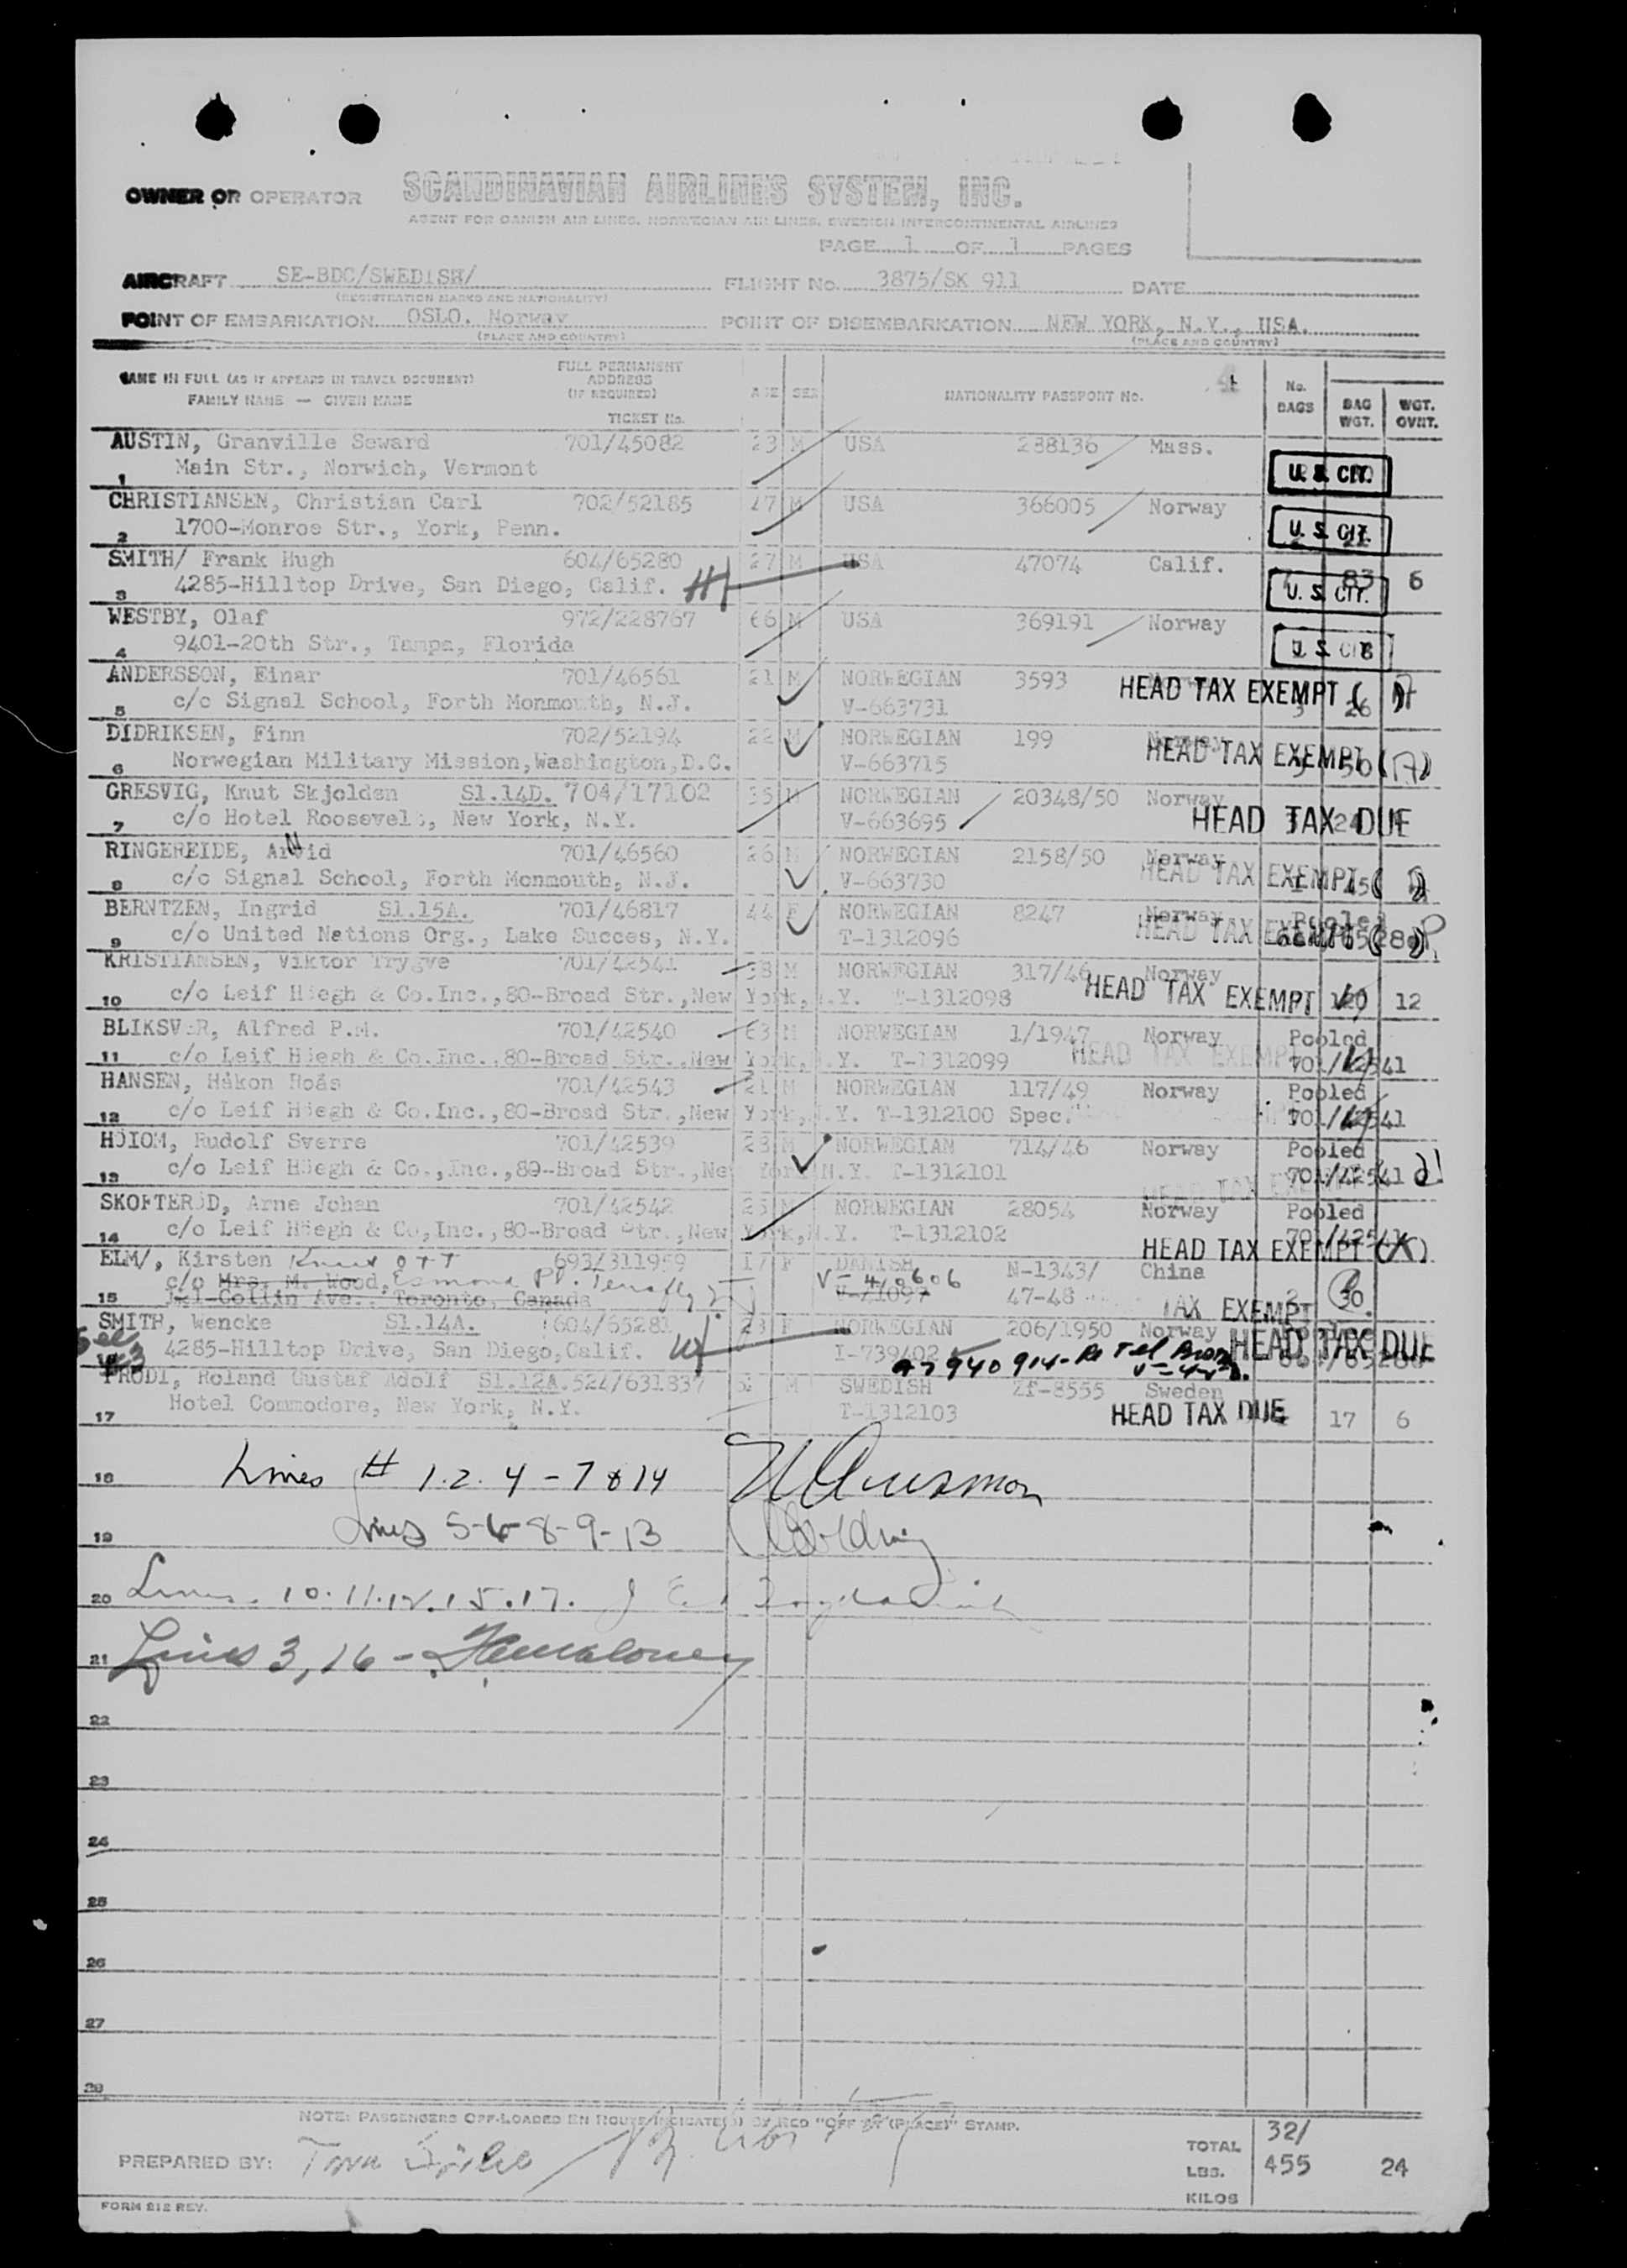 OWNER OR OPERATOR SCANDINAVIAN AIRLINES SYSTEM, INC.
AGENT FOR DANISH AIR LINES, NORWEGIAN AIR LINES, SWEDISH INTERCONTINENTAL AIRLINES
PAGE 1 OF 1 PAGES
AIRCRAFT SE-BDC/SWEDISH/ FLIGHT No. 3875/SK 911 DATE
(REGISTRATION MARKS AND NATIONALITY)
POINT OF EMBARKATION OSLO. Norway POINT OF DISEMBARKATION NEW YORK, N.Y., USA.
(PLACE AND COUNTRY) (PLACE AND COUNTRY)
NAME IN FULL (AS IT APPEARS IN TRAVEL DOCUMENT) FULL PERMANENT ADDRESS (IF REQUIRED) AGE SEX NATIONALITY PASSPORT No. 4 No. BAGS BAG WGT. WGT. OVWT.
FAMILY NAME — GIVEN NAME TICKET No.
AUSTIN, Granville Seward 701/45082 23 M USA 288136 Mass.
1 Main Str., Norwich, Vermont U.S. CIT.
CHRISTIANSEN, Christian Carl 702/52185 47 M USA 366005 Norway
2 1700-Monroe Str., York, Penn. U.S. CIT.
SMITH/ Frank Hugh 604/65280 27 M USA 47074 Calif. 83 6
3 4285-Hilltop Drive, San Diego, Calif. U.S. CIT.
WESTBY, Olaf 972/228767 66 M USA 369191 Norway
4 9401-20th Str., Tampa, Florida U.S. CIT
ANDERSSON, Einar 701/46561 21 M NORWEGIAN 3593 HEAD TAX EXEMPT
5 c/o Signal School, Forth Monmouth, N.J. V-663731 3 26
DIDRIKSEN, Finn 702/52194 22 M NORWEGIAN 199 Norway
6 Norwegian Military Mission,Washington,D.C. V-663715 HEAD TAX EXEMPT (A)
GRESVIG, Knut Skjolden Sl.14D. 704/17102 35 M NORWEGIAN 20348/50 Norway
7 c/o Hotel Roosevelt, New York, N.Y. V-663695 HEAD TAX DUE
RINGEREIDE, Arvid 701/46560 26 M NORWEGIAN 2158/50 Norway
8 c/o Signal School, Forth Monmouth, N.J. V-663730 HEAD TAX EXEMPT
BERNTZEN, Ingrid Sl.15A. 701/46817 44 F NORWEGIAN 8247 Norway Pooled
9 c/o United Nations Org., Lake Succes, N.Y. T-1312096 HEAD TAX EXEMPT
KRISTIANSEN, Viktor Trygve 701/42541 38 M NORWEGIAN 317/46 Norway
10 c/o Leif Höegh & Co.Inc.,80-Broad Str.,New York,N.Y. T-1312098 HEAD TAX EXEMPT 120 12
BLIKSVÆR, Alfred P.M. 701/42540 63 M NORWEGIAN 1/1947 Norway Pooled
11 c/o Leif Höegh & Co.Inc.,80-Broad Str.,New York,N.Y. T-1312099 HEAD TAX EXEMPT 701/42541
HANSEN, Håkon Hoås 701/42543 21 M NORWEGIAN 117/49 Norway Pooled
12 c/o Leif Höegh & Co.Inc.,80-Broad Str.,New York,N.Y. T-1312100 Spec. 701/42541
HÖIOM, Rudolf Sverre 701/42539 28 M NORWEGIAN 714/46 Norway Pooled
13 c/o Leif Höegh & Co.,Inc.,80-Broad Str.,New York N.Y. T-1312101 701/42541
SKOFTERÖD, Arne Johan 701/42542 25 M NORWEGIAN 28054 Norway Pooled
14 c/o Leif Höegh & Co,Inc.,80-Broad Str.,New York,N.Y. T-1312102 701/42541
HEAD TAX EXEMPT
ELM/, Kirsten 693/311959 17 F DANISH N-1343/ China
c/o Mrs. M. Wood, Esmond Pl. Tenafly V-410606 V-41097 47-48 30.
15 Collin Ave., Toronto, Canada TAX EXEMPT
SMITH, Wencke Sl.14A. 604/65281 23 F NORWEGIAN 206/1950 Norway HEAD TAX DUE
16 4285-Hilltop Drive, San Diego,Calif. I-739402
See #3
FRODI, Roland Gustaf Adolf Sl.12A.524/631337 M SWEDISH Zf-8555 Sweden
17 Hotel Commodore, New York, N.Y. T-1312103 HEAD TAX DUE 17 6
18 Lines # 1.2.4-7 & 14
19 Lines 5-6-8-9-13
20 Lines. 10.11.12.15.17.
21 Lines 3, 16 -
22
23
24
25
26
27
28
NOTE: PASSENGERS OFF-LOADED EN ROUTE INDICATE(D) BY RED "OFF AT (PLACE)" STAMP.
PREPARED BY: TOTAL 32/
LBS. 455 24
KILOS
FORM 212 REV.